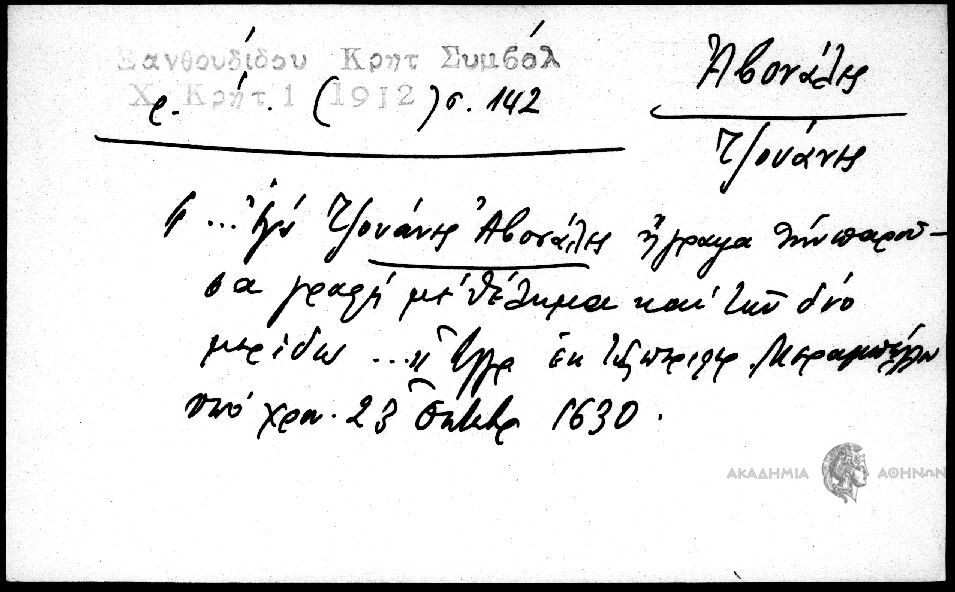 Ξανθουδίδου Κρητ Συμβόλ
Χρ. Κρήτ. 1 (1912) σ. 142
Ἀβονάλης
Τζουάνης
... ἐγώ Τζουάνης Ἀβονάλης ἤγραψα τήν παροῦ-
σα γραφή μέ θέλημα καί τῶν δύο
μερίδω ... ἐκ τῆς Μεραμπέλλου
ὑπό χρον. 23 Ὀκτωβρ 1630.
ΑΚΑΔΗΜΙΑ ΑΘΗΝΩΝ